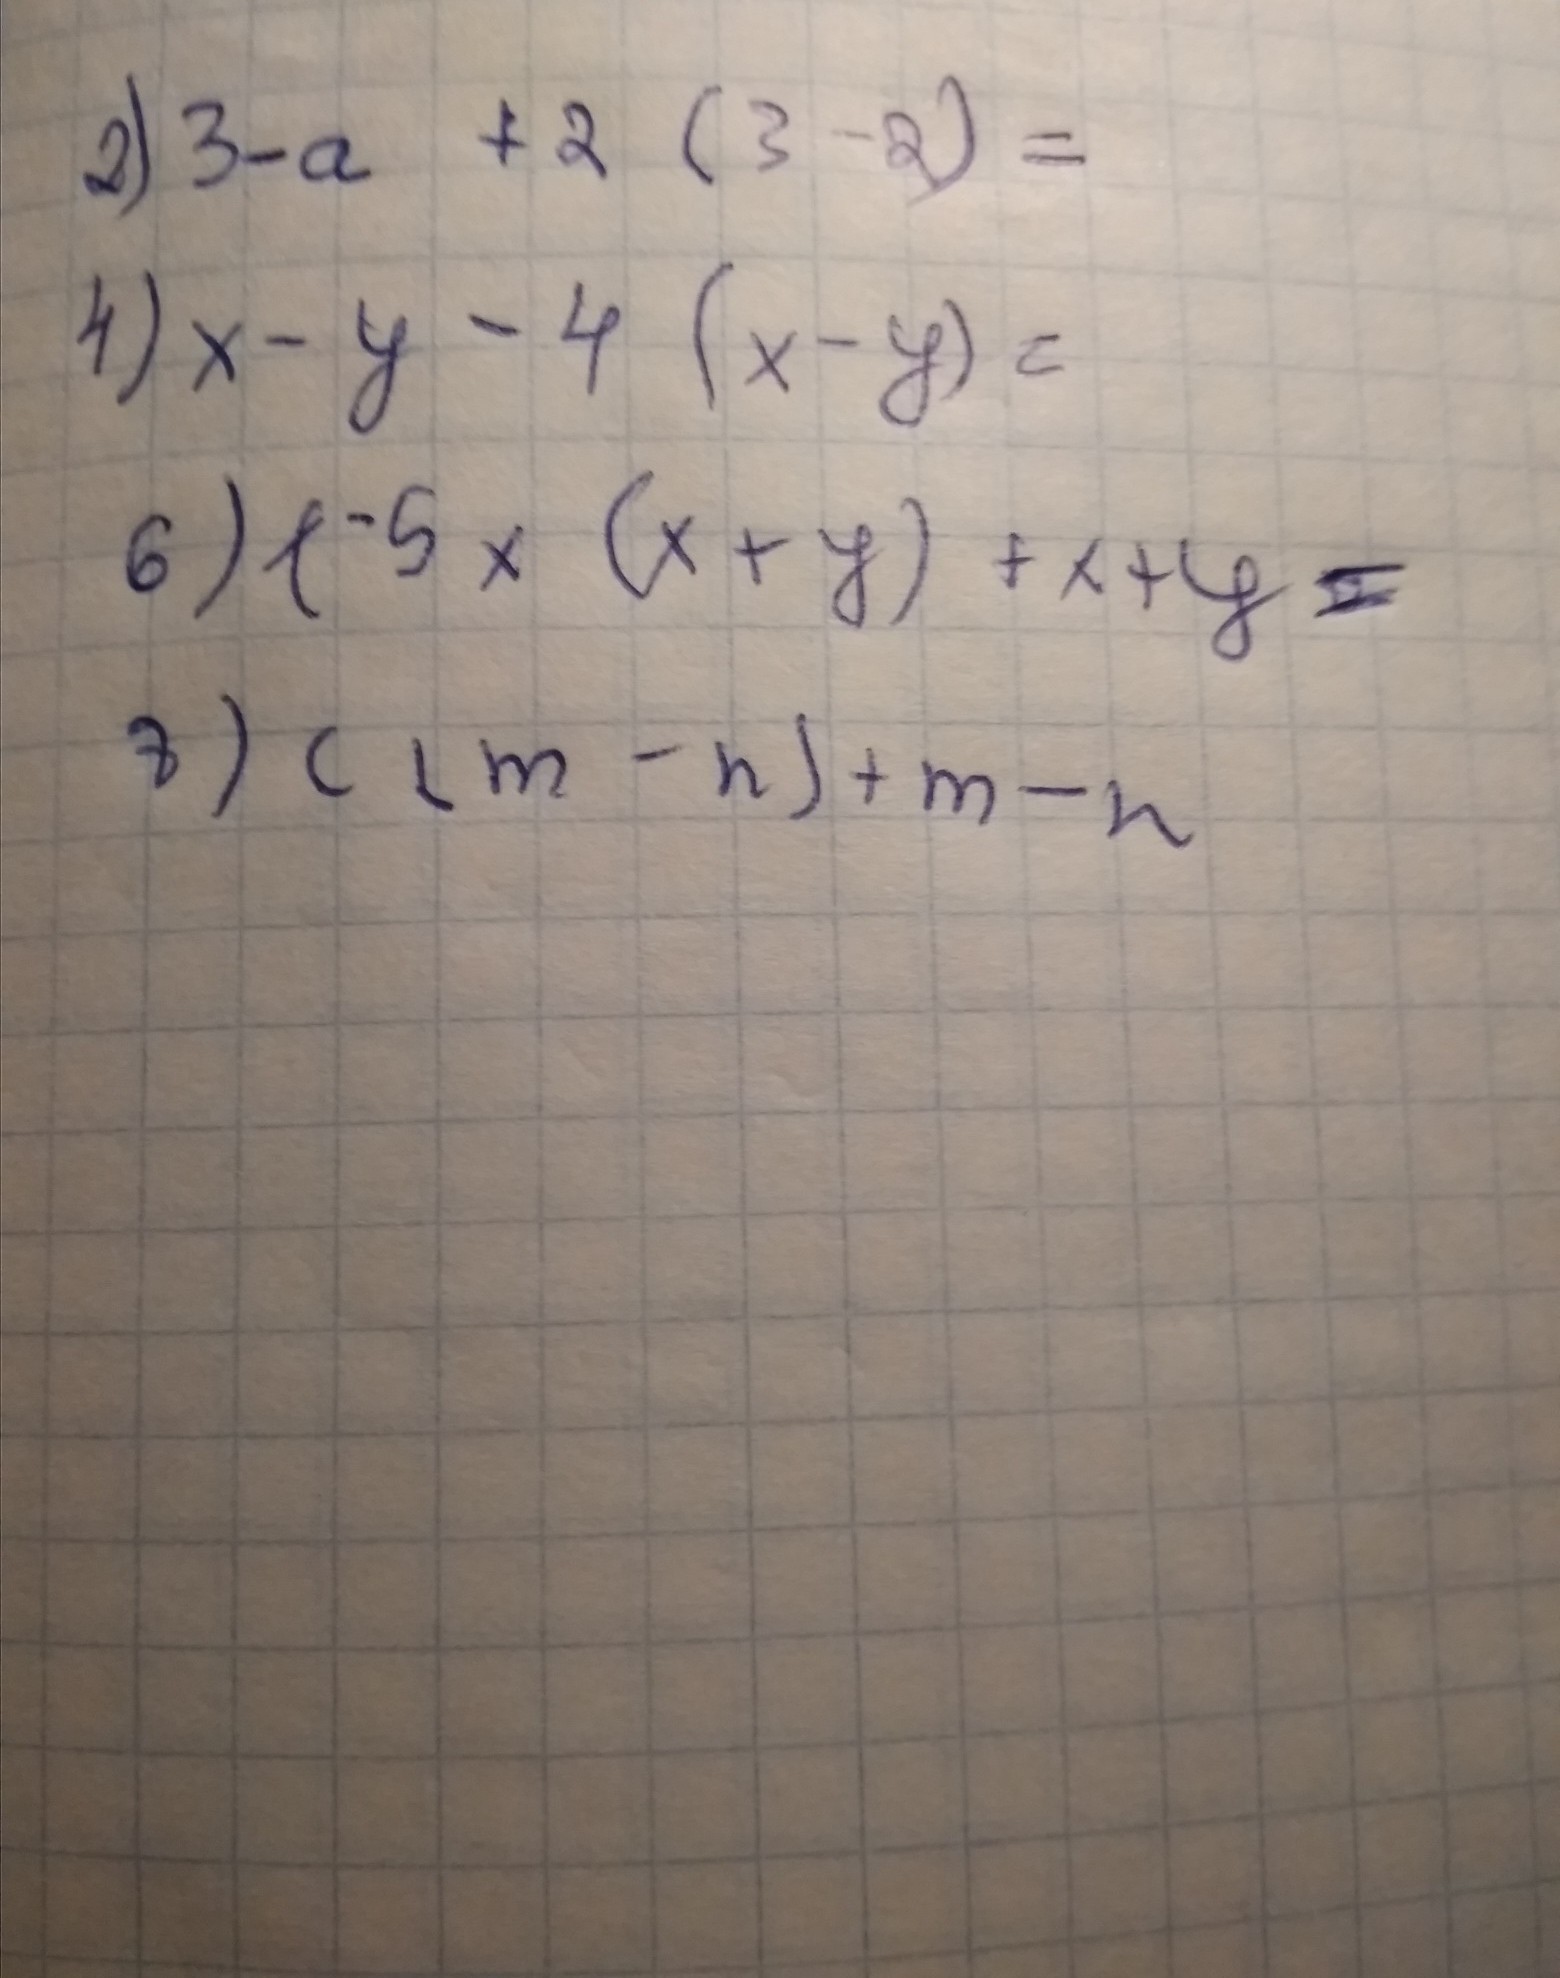 2) 3-a +2 (3-2) =
4) x - y - 4 (x - y) =
6) (-5 x (x + y) + x + y =
7) ( (m - n) + m - n